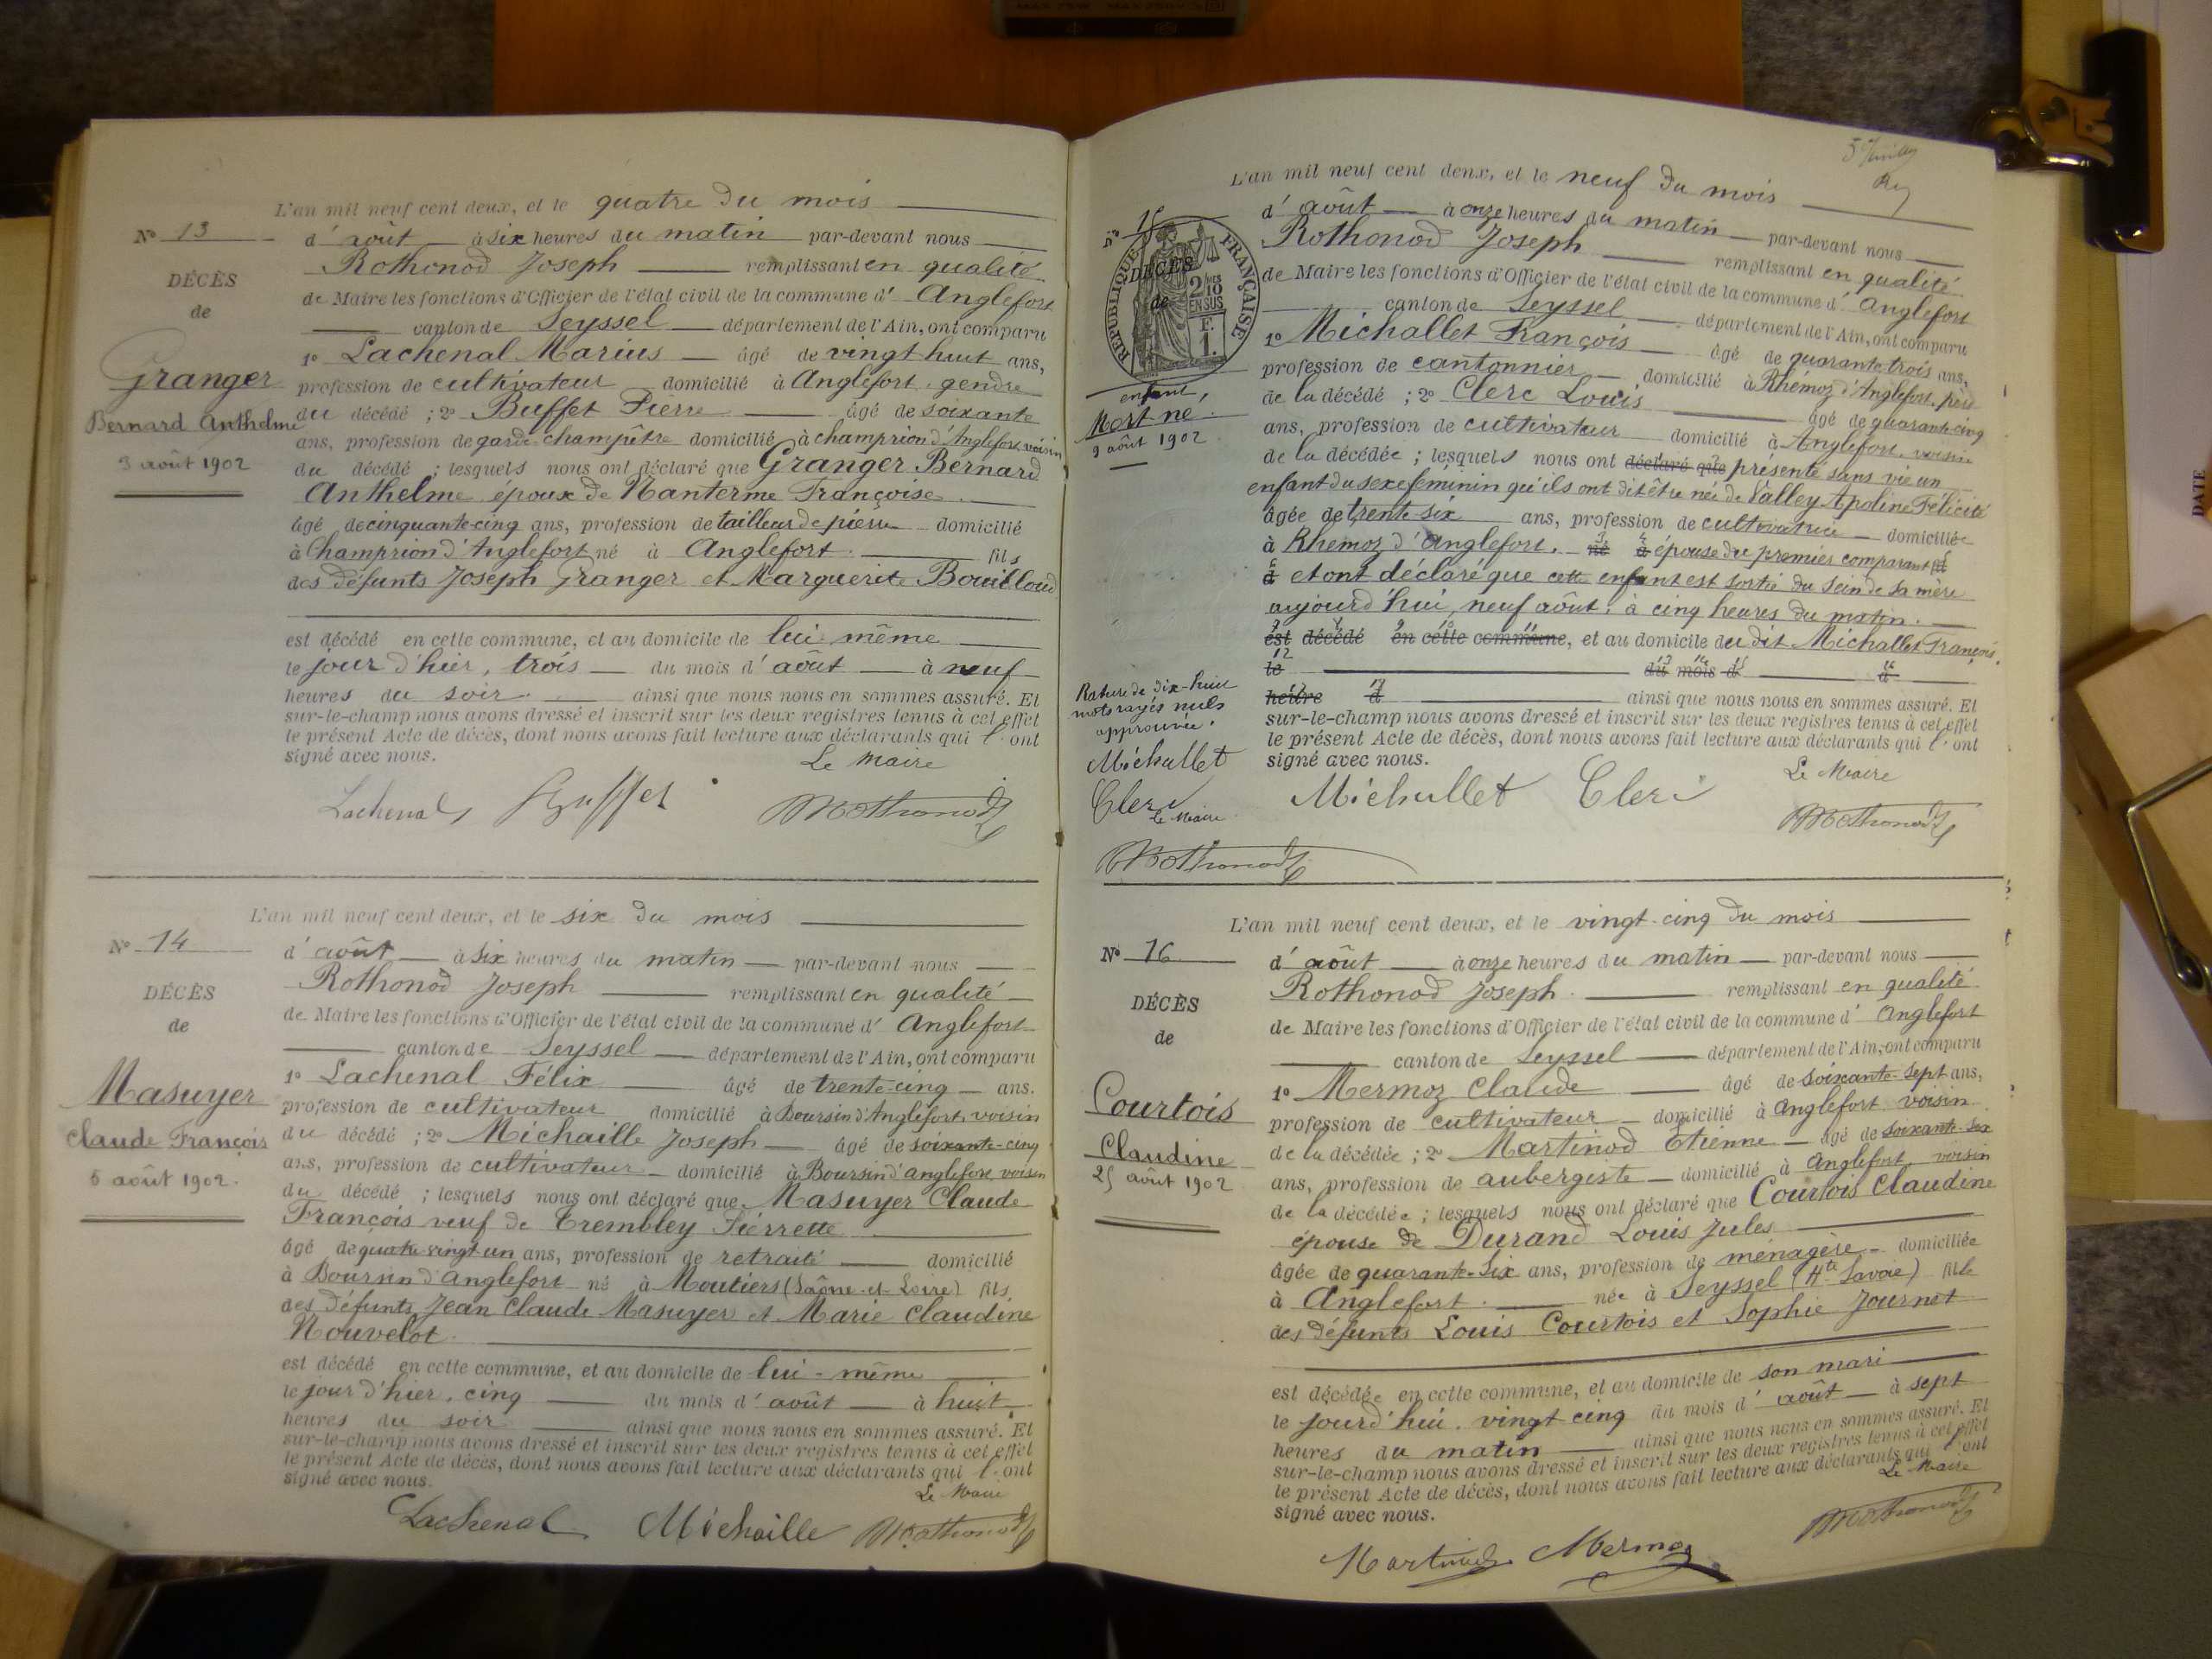 L'an mil neuf cent deux, et le quatre du mois
N° 13
d'août à six heures du matin par-devant nous
Rothonod Joseph remplissant en qualité
DÉCÈS
de Maire les fonctions d'Officier de l'état civil de la commune d'Anglefort
de
canton de Seyssel département de l'Ain, ont comparu
1° Lachenal Marius âgé de vingt huit ans,
Granger
profession de cultivateur domicilié à Anglefort, gendre
Bernard Anthelme
du décédé ; 2° Buffet Pierre âgé de soixante
ans, profession de garde-champêtre domicilié à champrion d'Anglefort, voisin
3 août 1902
du décédé ; lesquels nous ont déclaré que Granger Bernard
Anthelme époux de Nanterme Françoise
âgé de cinquante-cinq ans, profession de tailleur de pierre domicilié
à Champrion d'Anglefort né à Anglefort. fils
des défunts Joseph Granger et Marguerite Bouilloud
est décédé en cette commune, et au domicile de lui-même
le jour d'hier, trois du mois d'août à neuf
heures du soir. ainsi que nous nous en sommes assuré. Et
sur-le-champ nous avons dressé et inscrit sur les deux registres tenus à cet effet
le présent Acte de décès, dont nous avons fait lecture aux déclarants qui l'ont
signé avec nous.
Le Maire
Lachenal Buffet Rothonod
L'an mil neuf cent deux, et le six du mois
N° 14
d'août à six heures du matin par-devant nous
Rothonod Joseph remplissant en qualité
DÉCÈS
de Maire les fonctions d'Officier de l'état civil de la commune d'Anglefort
de
canton de Seyssel département de l'Ain, ont comparu
1° Lachenal Félix âgé de trente-cinq ans.
Masuyer
profession de cultivateur domicilié à Boursin d'Anglefort, voisin
Claude François
du décédé ; 2° Michaille Joseph âgé de soixante-cinq
ans, profession de cultivateur domicilié à Boursin d'anglefort, voisin
5 août 1902.
du décédé ; lesquels nous ont déclaré que Masuyer Claude
François veuf de Trembley Pierrette
âgé de quatre vingt un ans, profession de retraité domicilié
à Boursin d'anglefort né à Moutiers (Saône-et-Loire) fils
des défunts Jean Claude Masuyer et Marie Claudine
Nouvelot.
est décédé en cette commune, et au domicile de lui-même
le jour d'hier, cinq du mois d'août à huit
heures du soir ainsi que nous nous en sommes assuré. Et
sur-le-champ nous avons dressé et inscrit sur les deux registres tenus à cet effet
le présent Acte de décès, dont nous avons fait lecture aux déclarants qui l'ont
signé avec nous.
Le Maire
Lachenal Michaille Rothonod
Rey
L'an mil neuf cent deux, et le neuf du mois
N° 15
d'août à onze heures du matin par-devant nous
Rothonod Joseph remplissant en qualité
DÉCÈS
de
RÉPUBLIQUE FRANÇAISE
2/10 EN SUS
F. 1.
de Maire les fonctions d'Officier de l'état civil de la commune d'Anglefort
canton de Seyssel département de l'Ain, ont comparu
1° Michallet François âgé de quarante trois ans,
profession de cantonnier domicilié à Rhémoz d'Anglefort, père
enfant,
de la décédé ; 2° Clerc Louis âgé de quarante-cinq
Mort-né.
ans, profession de cultivateur domicilié à Anglefort, voisin
9 août 1902
de la décédée ; lesquels nous ont déclaré que présenté sans vie un
enfant du sexe féminin qu'ils ont dit être née de Valley Apoline Félicité
âgée de trente-six ans, profession de cultivatrice domiciliée
à Rhemoz d'Anglefort. né à épouse du premier comparant
à et ont déclaré que cette enfant est sortie du sein de sa mère
aujourd'hui, neuf août, à cinq heures du matin.
est décédé en cette commune, et au domicile du dit Michallet François.
le du mois d' à
heure d ainsi que nous nous en sommes assuré. Et
Rature de dix-huit
mots rayés nuls
approuvée.
sur-le-champ nous avons dressé et inscrit sur les deux registres tenus à cet effet
le présent Acte de décès, dont nous avons fait lecture aux déclarants qui l'ont
signé avec nous.
Le Maire
Michallet Clerc Rothonod
Michallet
Clerc
Le Maire
Rothonod
L'an mil neuf cent deux, et le vingt-cinq du mois
N° 16
d'août à onze heures du matin par-devant nous
Rothonod Joseph. remplissant en qualité
DÉCÈS
de Maire les fonctions d'Officier de l'état civil de la commune d'Anglefort
de
canton de Seyssel département de l'Ain, ont comparu
1° Mermoz Claude âgé de soixante-sept ans,
Courtois
profession de cultivateur domicilié à Anglefort voisin
Claudine
de la décédée ; 2° Martinod Etienne âgé de soixante-six
25 août 1902
ans, profession de aubergiste domicilié à Anglefort voisin
de la décédée ; lesquels nous ont déclaré que Courtois Claudine
épouse de Durand Louis Jules
âgée de quarante-six ans, profession de ménagère domiciliée
à Anglefort. née à Seyssel (Hte Savoie) fille
des défunts Louis Courtois et Sophie Journet
est décédée en cette commune, et au domicile de son mari
le jourd'hui. vingt cinq du mois d'août à sept
heures du matin ainsi que nous nous en sommes assuré. Et
sur-le-champ nous avons dressé et inscrit sur les deux registres tenus à cet effet
le présent Acte de décès, dont nous avons fait lecture aux déclarants qui l'ont
signé avec nous.
Le Maire
Martinod Mermoz Rothonod
DATE